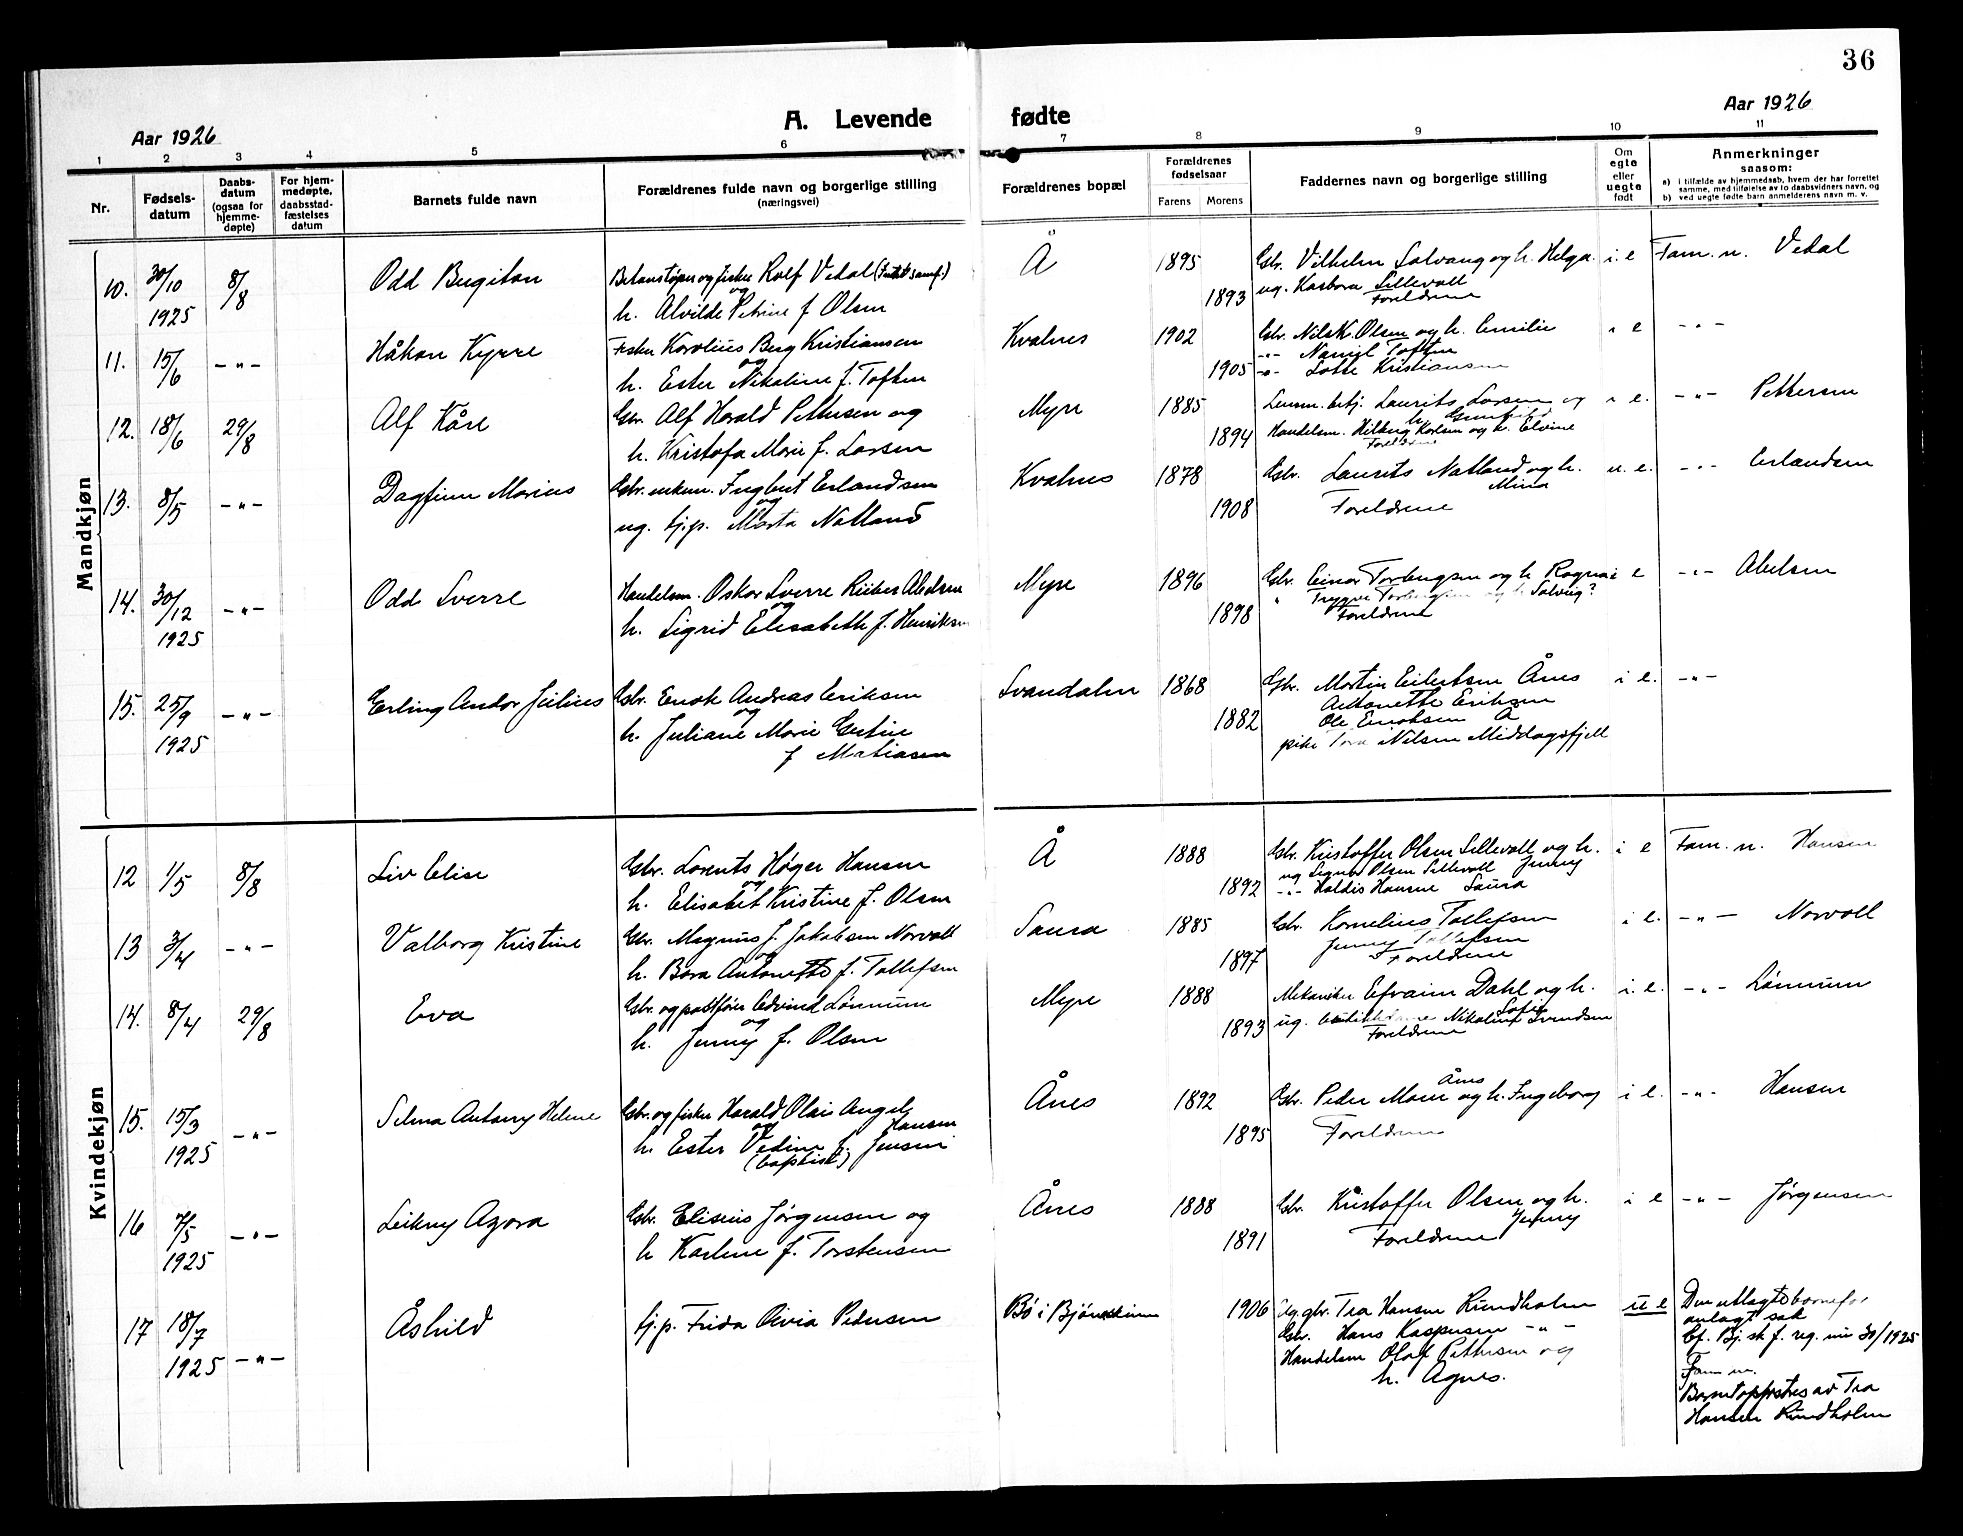 36
Aar 1926
A. Levende fødte
Aar 1926
1 2 3 4 5 6 7 8 9 10 11
Nr.
Fødsels-
datum
Daabs-
datum
(ogsaa for
hjemme-
døpte)
For hjem-
medøpte,
daabsstad-
fæstelses
datum
Barnets fulde navn
Forældrenes fulde navn og borgerlige stilling
(næringsvei)
Forældrenes bopæl
Forældrenes
fødselsaar
Farens Morens
Faddernes navn og borgerlige stilling
Om
egte
eller
uegte
født
Anmerkninger
saasom:
a) i tilfælde av hjemmedaab, hvem der har forrettet
samme, med tilføielse av to daabsvidners navn, og
b) ved uegte fødte barn anmelderens navn m. v.
Mandkjøn
10. 30/10 1925 8/8 Odd
og fisker Rolf Vedal
og
h. Alvilde Petrine f Olsen
Å 1895 1893
Gbr. Vilhelm Solvang og h. Helga
ug. Kasbora Sillevoll
Foreldrene
i. e Fam. n. Vedal
11. 15/6 -"- Håkon Kyrre
Fisker Karolius Berg Kristiansen
og
h. Ester Nikoline f. Toften
Kvalnes 1902 1905
Gbr. Nils K. Olsen og h. Emilie
-"- Toften
-"- Lotte Kristiansen
i e -"-
12. 18/6 29/8 Alf Kåre
Gbr. Alf Harald Pettersen og
h. Kristofa Marie f. Larsen
Myre 1885 1894
Lensm. betj. Laurits Larsen og
h.
Handelsm. Karlsen og h. Elvine
Foreldrene
i e. -"- Pettersen
13. 8/5 -"- Dagfinn Marius
Gbr. enkem. Ingbert Erlandsen
og
ug. tj.p. Marta Natland
Kvalnes 1878 1908
Gbr. Laurits Natland og h.
Mina
Foreldrene
u. e. -"- Erlandsen
14. 30/12 1925 -"- Odd Sverre
Handelsm. Oskar Sverre Riiber Abelsen
og
h. Sigrid Elisabeth f. Henriksen
Myre 1896 1898
Gbr. Einar Torbergsen og h Ragna
" Trygve Torbergsen og h Solveig?
Foreldrene
i e -"- Abelsen
15. 25/9 1925 -"- Erling Andor Julius
Gbr. Enok Andreas Eriksen
og
h. Juliane Marie Gertine
f Matiasen
Svandalen 1868 1882
Gbr. Martin Eilertsen Ånes
Antonette Eriksen
Ole Enoksen Å
pike Tora Nilsen Middagsfjell
i e. -"-
Kvindekjøn
12 1/5 8/8 Liv Elise
Gbr. Lorents Høger Hansen
og
h. Elisabet Kristine f. Olsen
Å 1888 1892
Gbr. Kristoffer Olsen Sillevoll og h.
Jenny
ug Signe Olsen Sillevoll
-"- Haldis Hansen Saura
i e Fam. n. Hansen
13 3/4 -"- Valborg Kristine
Gbr. Magnus J. Jakobsen Norvoll
og
h. Bora Antonette f. Tollefsen
Saura 1885 1897
Gbr. Kornelius Tollefsen
Jenny Tollefsen
Foreldrene
i e. -"- Norvoll
14. 8/4 29/8 Eva
Gbr. og postfører Edvind Lønnum
og
h. Jenny f. Olsen
Myre 1888 1893
Mekaniker Efraim Dahl og h.
Sofie
ug. Nikoline Svendsen
Foreldrene
i. e. -"- Lønnum
15. 15/3 1925 -"- Selma Antony Helene
Gbr. og fisker Harald Olai Angel
Hansen
og
h. Ester Vedine f. Jensen
(baptist)
Ånes 1892 1895
Ånes
Gbr. Peder Moen og h. Ingeborg
Foreldrene
i e. -"- Hansen
16 7/5 1925 -"- Leikny Agora
Gbr. Elisius Jørgensen og
h Karline f. Torstensen
Ånes 1888 1891
Gbr. Kristoffer Olsen og h.
Jenny
Foreldrene
i e -"- Jørgensen
17 18/7 1925 -"- Åshild
tj.p. Frida Pedersen
Bø i Bjørnskinn 1906
Ug. gbr. Tea Hansen Rundholm
Gbr. Hans Kaspersen -"-
Handelsm Olaf Pettersen og
h. Agnes.
u e
Den utlagte barnefar
anlagt sak
Cf. Bj. sk. f. reg. nr 30/1925
Fam n.
Barnet oppfostres av Tea
Hansen Rundholm